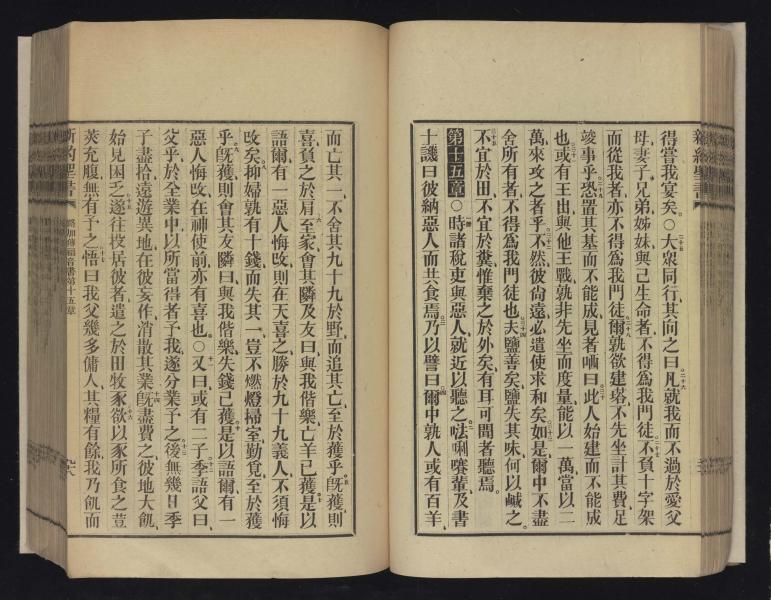 得嘗我宴矣○大衆同行其向之曰凡就我而不過於愛父
母妻子兄弟姊妹與己生命者不得爲我門徒不負十字架
而從我者亦不得爲我門徒爾孰欲建塔不先坐計其費足
竣事乎恐置其基而不能成見者哂曰此人始建而不能成
也或有王出與他王戰孰非先坐而度量能以一萬當以二
萬來攻之者乎不然彼尙遠必遣使求和矣如是爾中不盡
舍所有者不得爲我門徒也夫鹽善矣鹽失其味何以鹹之
不宜於田不宜於糞惟棄之於外矣有耳可聞者聽焉
第十五章○時諸稅吏與惡人就近以聽之𠵽唎㘔輩及書
士譏曰彼納惡人而共食焉乃以譬曰爾中孰人或有百羊
而亡其一不舍其九十九於野而追其亡至於獲乎既獲則
喜負之於肩至家會其隣及友曰與我偕樂亡羊已獲是以
語爾有一惡人悔改則在天喜之勝於九十九義人不須悔
改矣抑婦孰有十錢而失其一豈不燃燈掃室勤覓至於獲
乎既獲則會其友隣曰與我偕樂失錢已獲是以語爾有一
惡人悔改在神使前亦有喜也○又曰或有二子季語父曰
父乎於全業中以所當得者予我遂分業予之後無幾日季
子盡拾遠遊異地在彼妄作消散其業既盡費之彼地大飢
始見困乏遂往投居彼者遣之於田牧豕欲以豕所食之荳
莢充腹無有予之悟曰我父幾多傭人其糧有餘我乃飢而
新約聖書
路加傳福音書第十五章